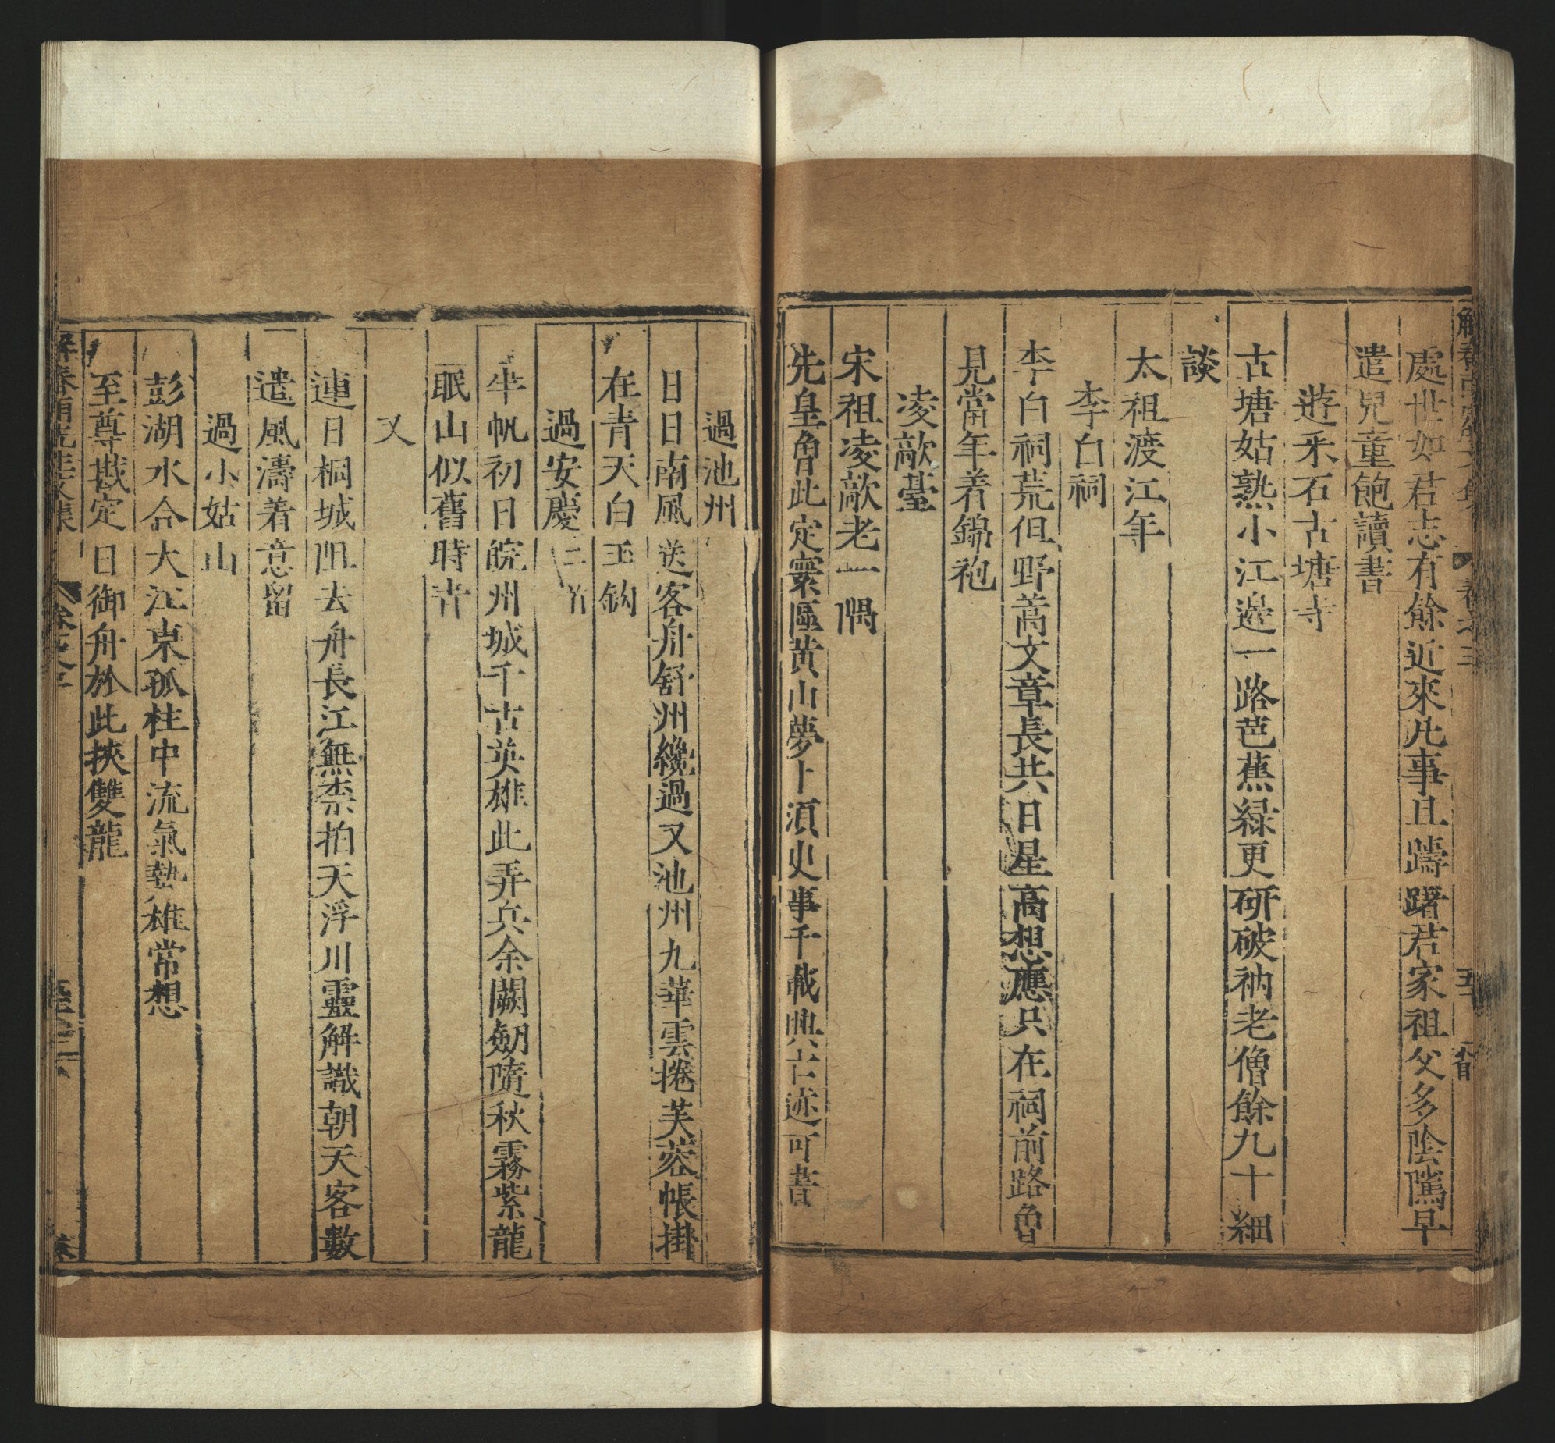 處世如君志有餘近來凡事且躊躇君家祖父多陰隲早
遣兒童飽讀書
遊采石古塘寺
古塘姑熟小江邊一路芭蕉緑更研破衲老僧餘九十細
談
太祖渡江年
李白祠
李白祠荒但野蒿文章長共日星高想應只在祠前路魯
見當年着錦袍
凌歊臺
宋祖凌歊老一隅
先皇魯此定寰區黄山夢卜須史事千載典古迹可書
過池州
日日南風送客舟舒州纔過又池州九華雲捲芙蓉帳掛
在青天白玉鈎
過安慶二首
半帆初日皖州城千古英雄此弄兵余闕劒隨秋霧紫龍
眠山似舊時青
又
連日桐城阻去舟長江無柰拍天浮川靈解識朝天客數
遣風濤着意留
過小姑山
彭湖水合大江東孤柱中流氣勢雄常想
至尊戡定日御舟於此挾雙龍